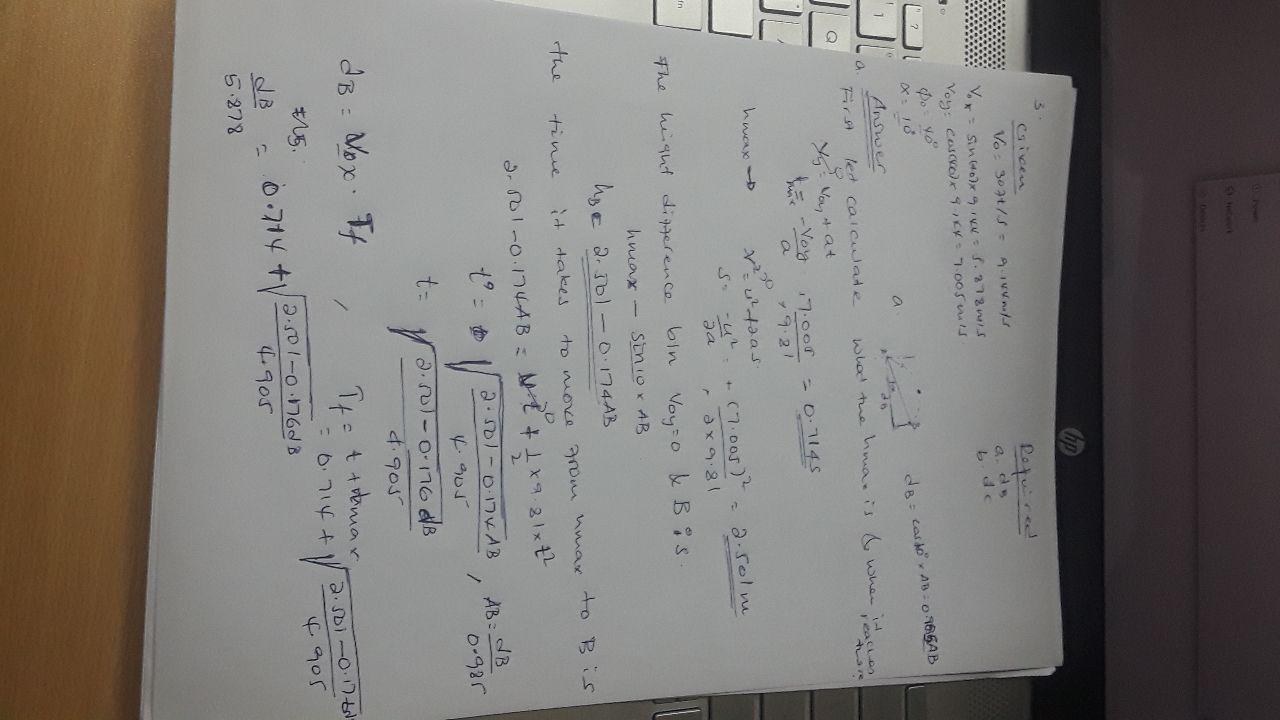 Power
Network
Devices
hp
?
1
Q
3.
Given
Required
Vo = 30ft/s = 9.144m/s
a. dB
Vox = sin(40)x 9.144 = 5.878m/s
b. dc
Voy = cos(40)x 9.144 = 7.005m/s
Φo = 40°
α = 10°
a.
dB = cos10° x AB = 0.985AB
Answer
a. First let calculate what the hmax is & when it reaches there
Vy = Voy + at
tmax = -Voy/a = 7.005/9.81 = 0.714s
hmax → v² = u² + 2as
s = -u²/2a = + (7.005)²/2x9.81 = 2.501m
The height difference b/n Voy=0 & B is.
hmax - sin10 x AB
hB = 2.501 - 0.174AB
the time it takes to move from hmax to B is
2.501-0.174AB = ut + 1/2 x 9.81 x t²
t = √(2.501-0.174AB/4.905), AB = dB/0.985
t = √(2.501-0.176dB/4.905)
dB = Vox . Tf , Tf = t + tmax
= 0.714 + √(2.501-0.17 /4.905)
dB/5.878 = 0.714 + √(2.501-0.176dB/4.905)